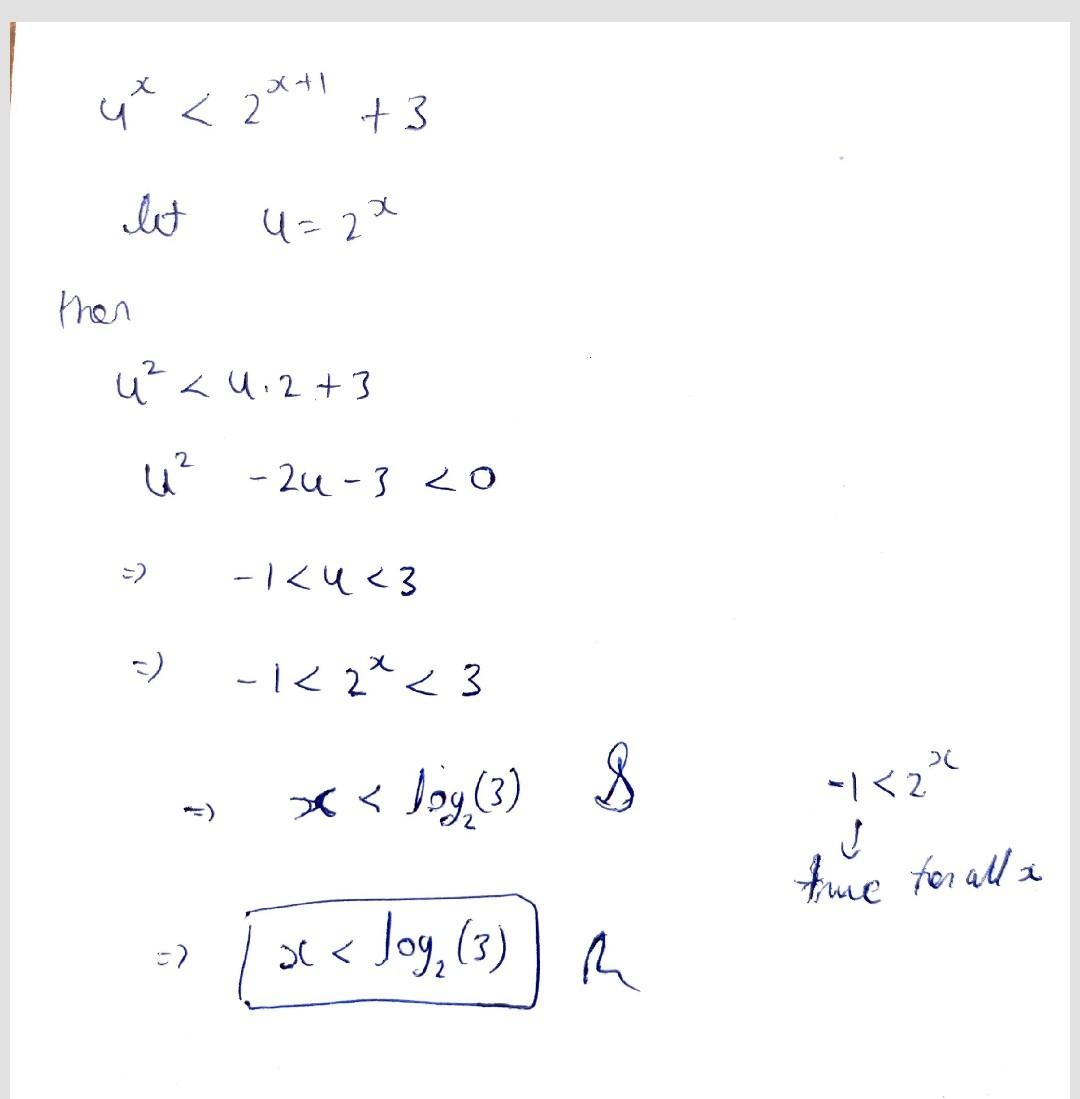 4^x < 2^{x+1} + 3
let u = 2^x
then
u^2 < u·2 + 3
u^2 - 2u - 3 < 0
=> -1 < u < 3
=> -1 < 2^x < 3
=> x < log_2(3) & -1 < 2^x
↓
true for all x
=> x < log_2(3)